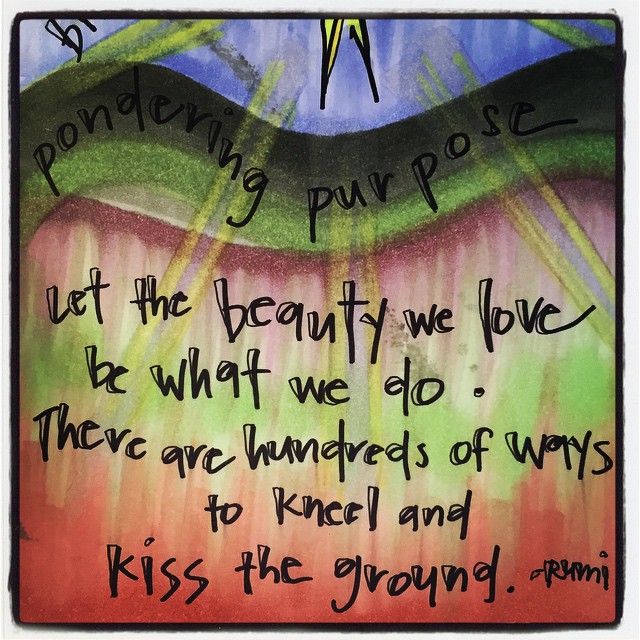 pondering purpose
Let the beauty we love
be what we do.
There are hundreds of ways
to kneel and
kiss the ground. -Rumi